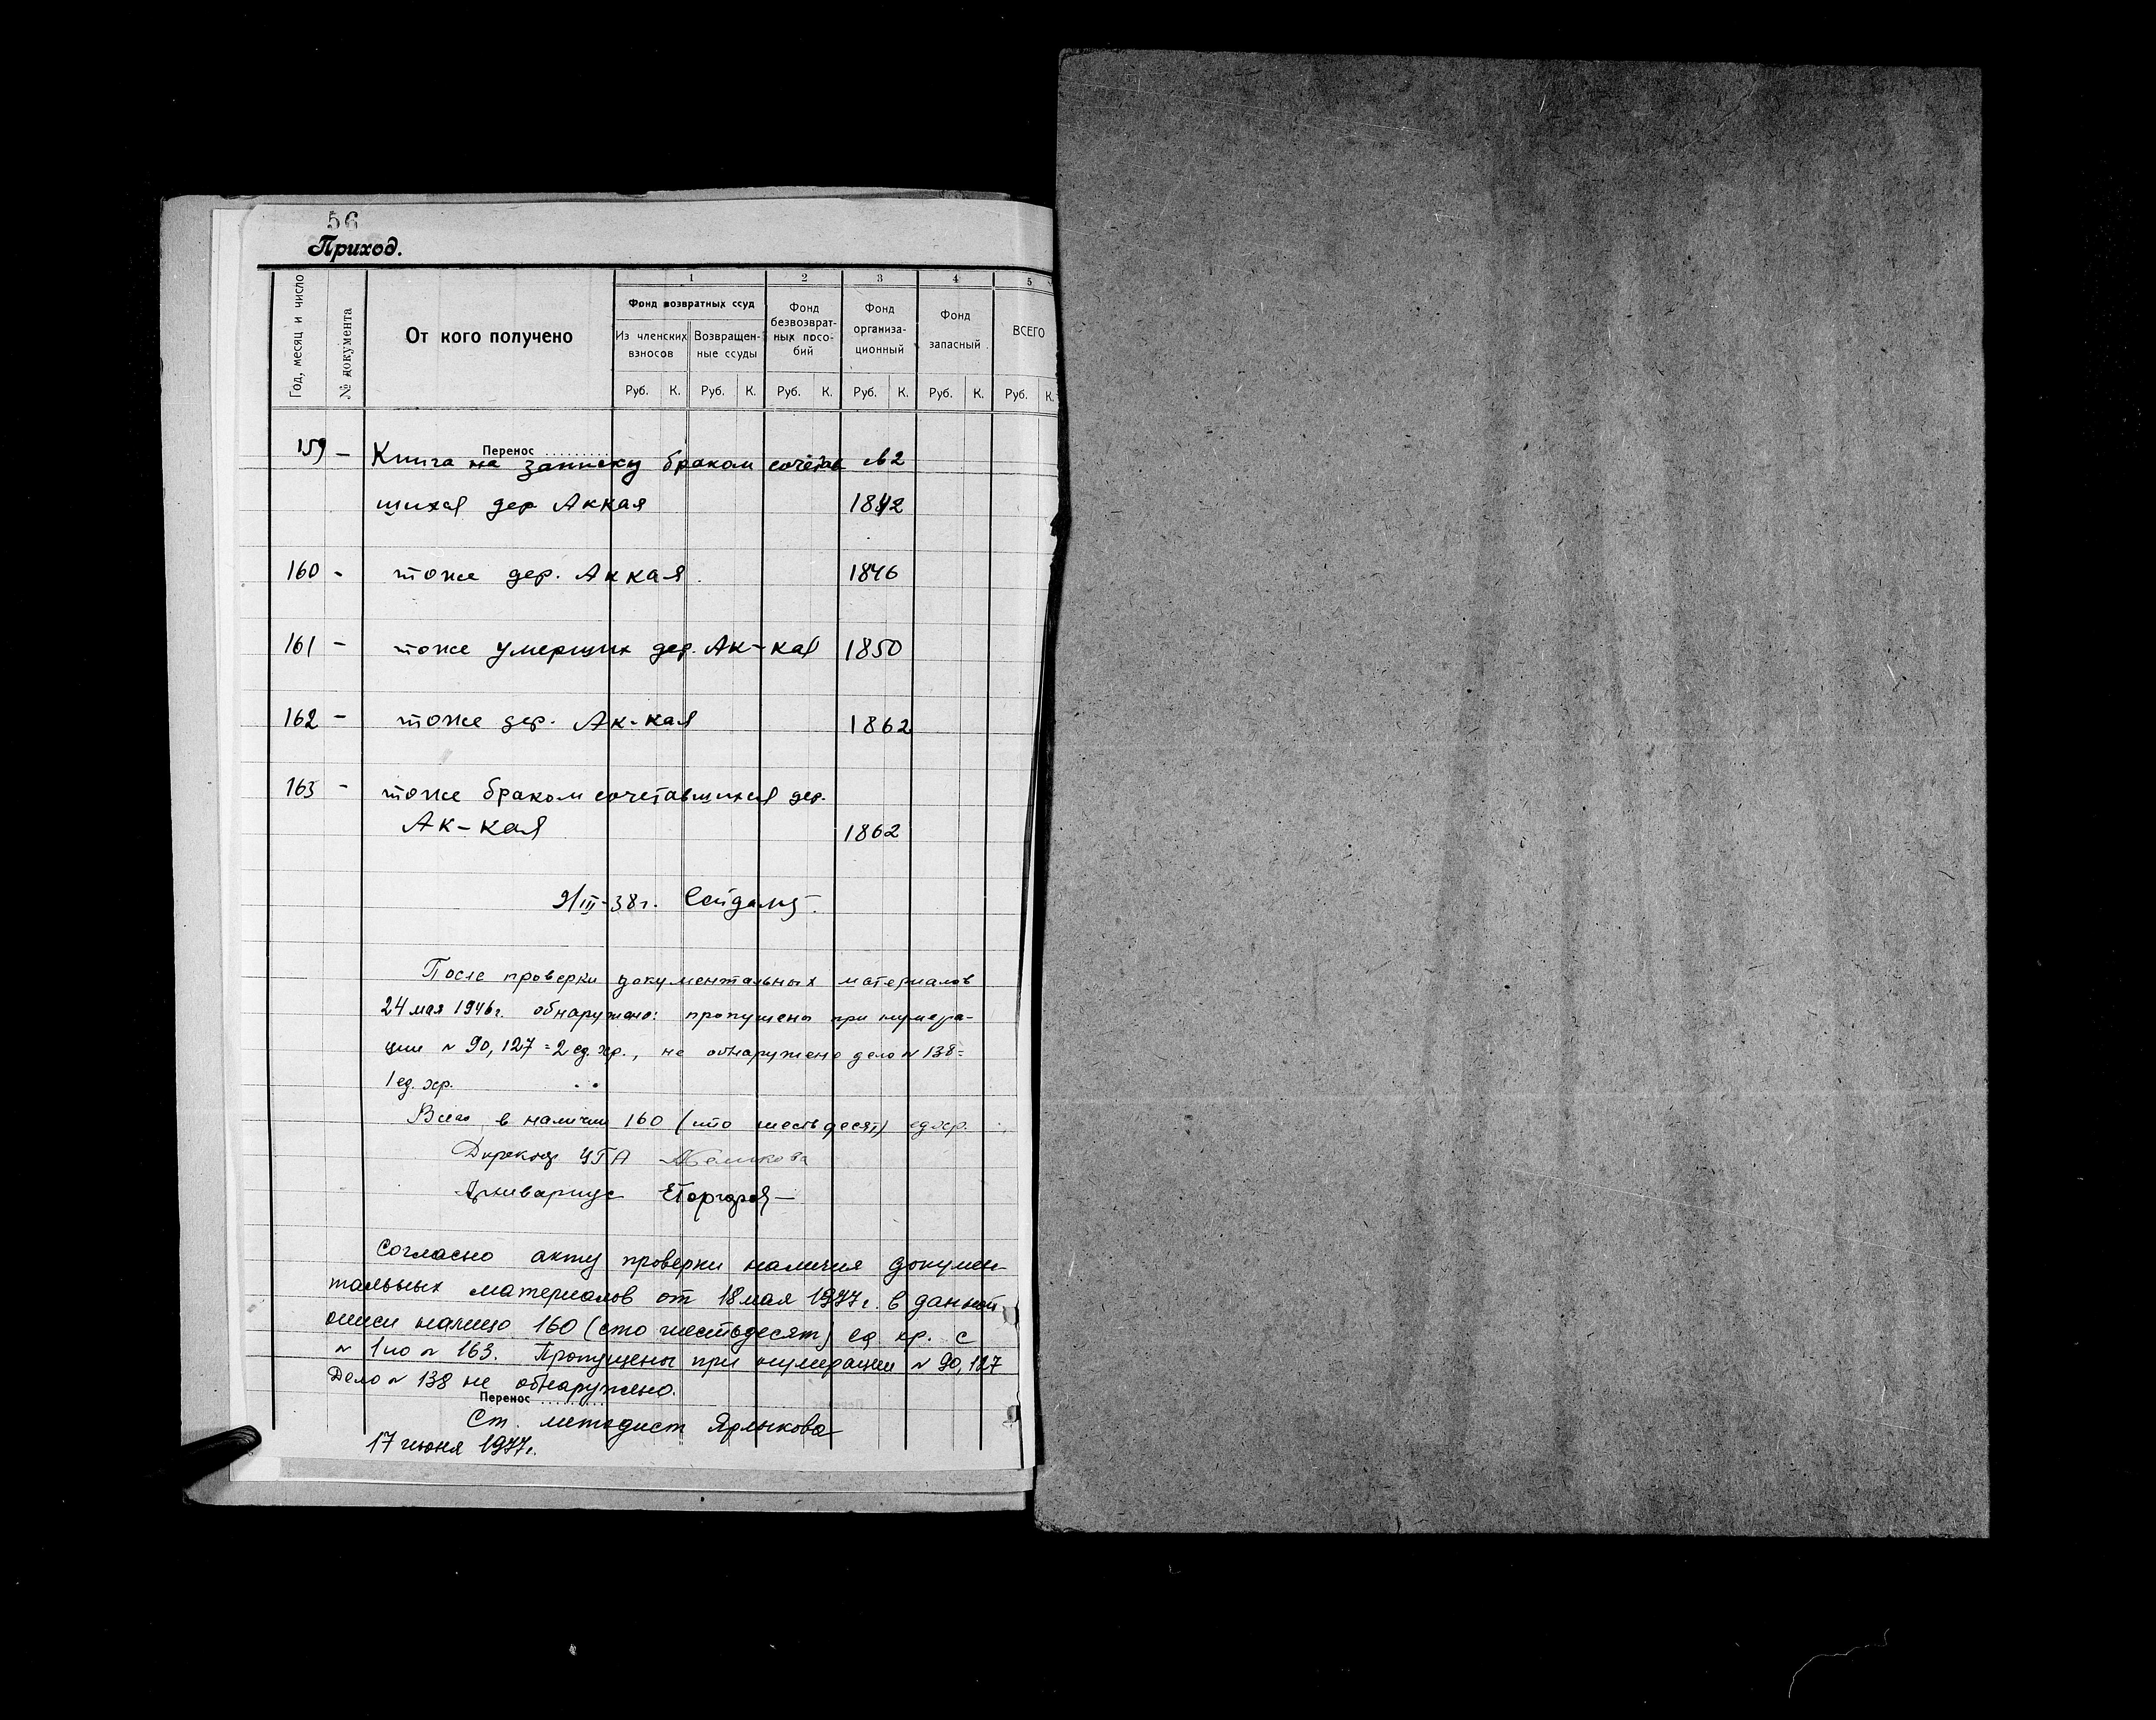 56
Приход.
Год, месяц и число
№ документа
От кого получено
1
2
3
4
5
Фонд возвратных ссуд
Из членских взносов
Возвращен-
ные ссуды
Фонд
безвозврат-
ных посо-
бий
Фонд
организа-
ционный
Фонд
запасный
ВСЕГО
Руб. К. Руб. К. Руб. К. Руб. К. Руб. К. Руб. К.
Перенос ..........
159 – Книга на записку браком сочетав
шихся дер Аккая 1842
160 - тоже дер. Аккая 1846
161 – тоже умерших дер. Ак-кая 1850
162 – тоже дер. Ак-кая 1862
163 - тоже браком сочетавшихся дер.
Ак-кая 1862
9/III-38г.
После проверки документальных материалов
24 мая 1946г. обнаружено: пропущены при нумера-
ции N 90, 127 = 2 ед. хр., не обнаружено дело N 138 =
1 ед. хр.
Всего в наличии 160 (сто шестьдесят) ед. хр.
Директор ЦГА
Архивариус
Согласно акту проверки наличия докумен-
тальных материалов от 18 мая 1977г. в данной
описи налицо 160 (сто шестьдесят) ед. хр. с
N 1 по N 163. Пропущены при нумерации N 90, 127
Дело N 138 не обнаружено.
Перенос ..........
Ст. методист Ярлыкова
17 июня 1977г.